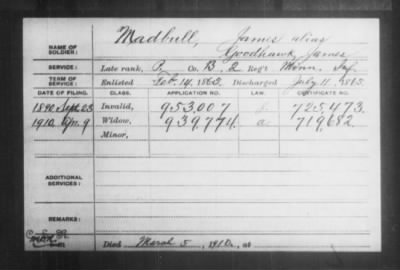 Madbull, James alias
NAME OF SOLDIER: Goodhawk, James
SERVICE: Late rank, P, Co. B, 2 Reg't Minn. Inf.
TERM OF SERVICE: Enlisted Feb. 14, 1862 Discharged July 11, 1865
DATE OF FILING. CLASS. APPLICATION NO. LAW. CERTIFICATE NO.
1890 Sept 23 Invalid, 953,007 725,473.
1910 Apr. 9 Widow, 939,774 a. 719,682
Minor,
ADDITIONAL SERVICES:
REMARKS:
Died March 5, 1910, at